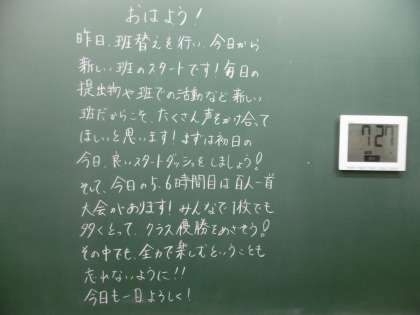 おはよう!
昨日、班替えを行い、今日から
新しい班のスタートです!毎日の
提出物や班での活動など新しい
班だからこそ、たくさん声をかけ合って
ほしいと思います!まずは初日の
今日、良いスタートダッシュをしましょう!
そして、今日の5.6時間目は百人一首
大会があります!みんなで1枚でも
多くとって、クラス優勝をめざそう!
その中でも、全力で楽しむということも
忘れないように!!
今日も一日よろしく!
7:27